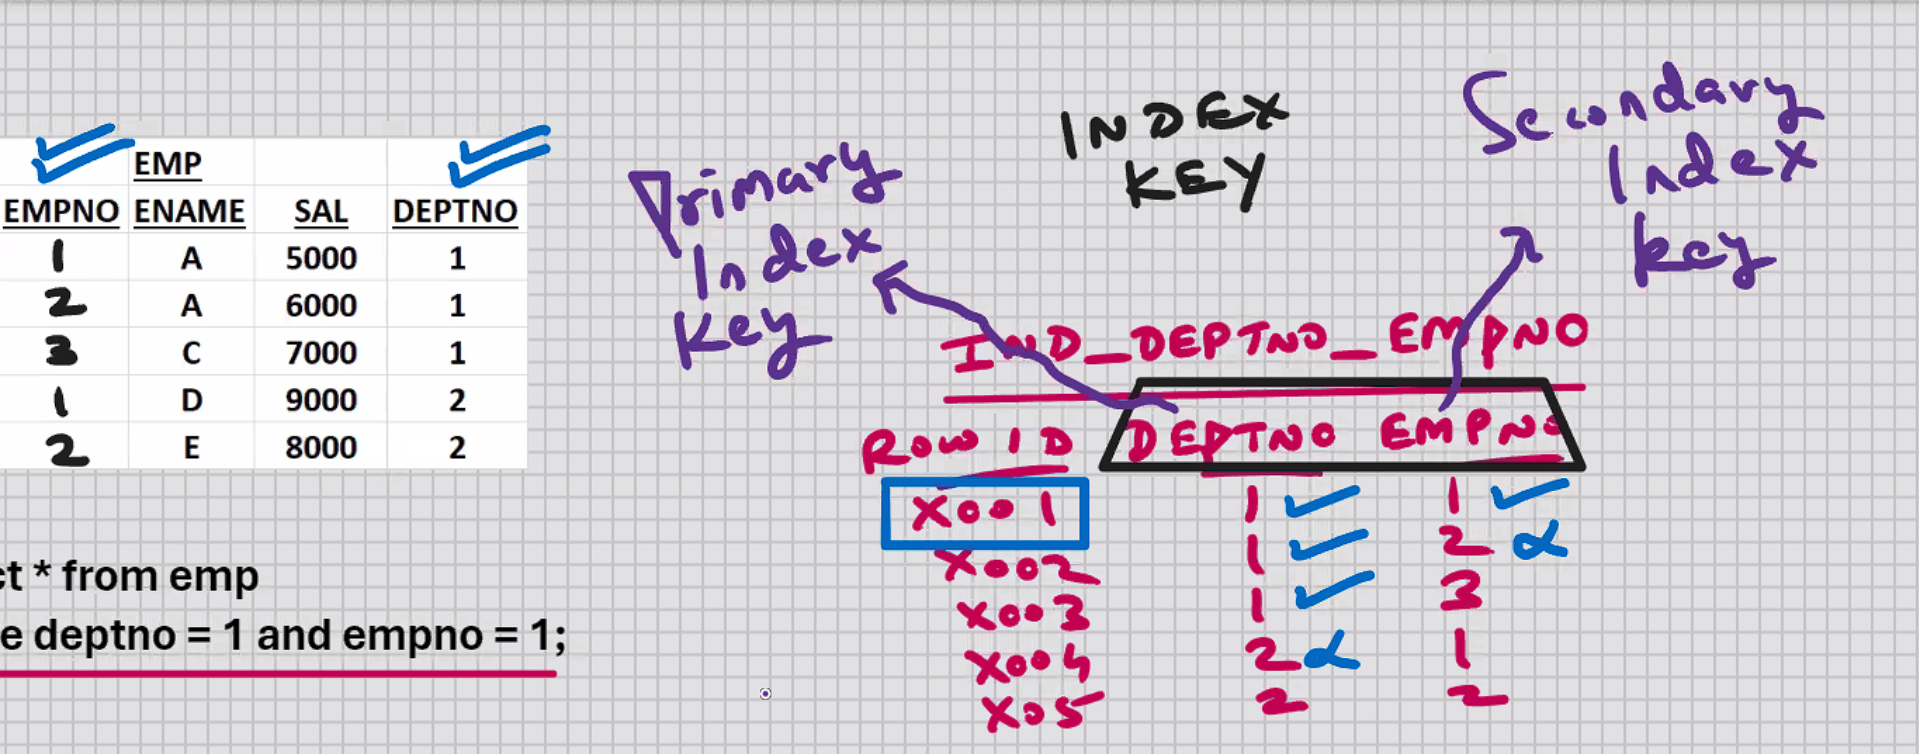 EMP
EMPNO ENAME SAL DEPTNO
1 A 5000 1
2 A 6000 1
3 C 7000 1
1 D 9000 2
2 E 8000 2
ct * from emp
e deptno = 1 and empno = 1;
Primary
Index
Key
INDEX
KEY
Secondary
Index
key
IND_DEPTNO_EMPNO
ROW ID DEPTNO EMPNO
X001 1 1
X002 1 2
X003 1 3
X004 2 1
X05 2 2